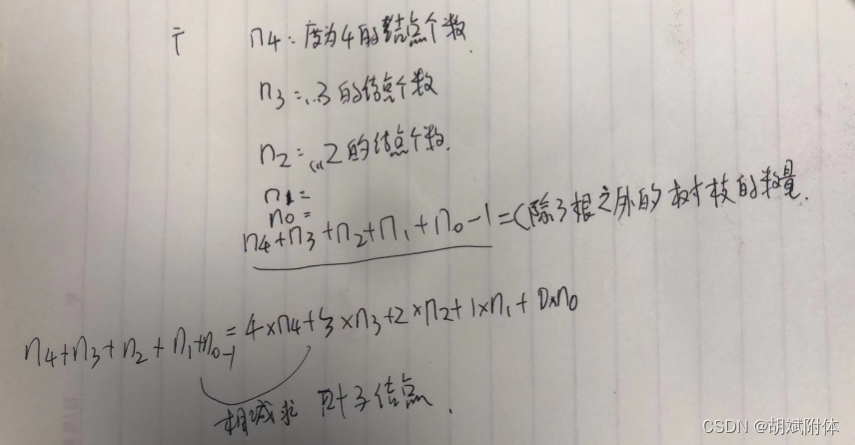 n4：度为4的结点个数
n3=..3的结点个数
n2=〃2的结点个数.
n1=
n0=
n4+n3+n2+n1+n0-1=(除了根之外的树枝的数量.
n4+n3+n2+n1+n0-1=4×n4+3×n3+2×n2+1×n1+0×n0
相减求 叶子结点.
CSDN @胡斌附体